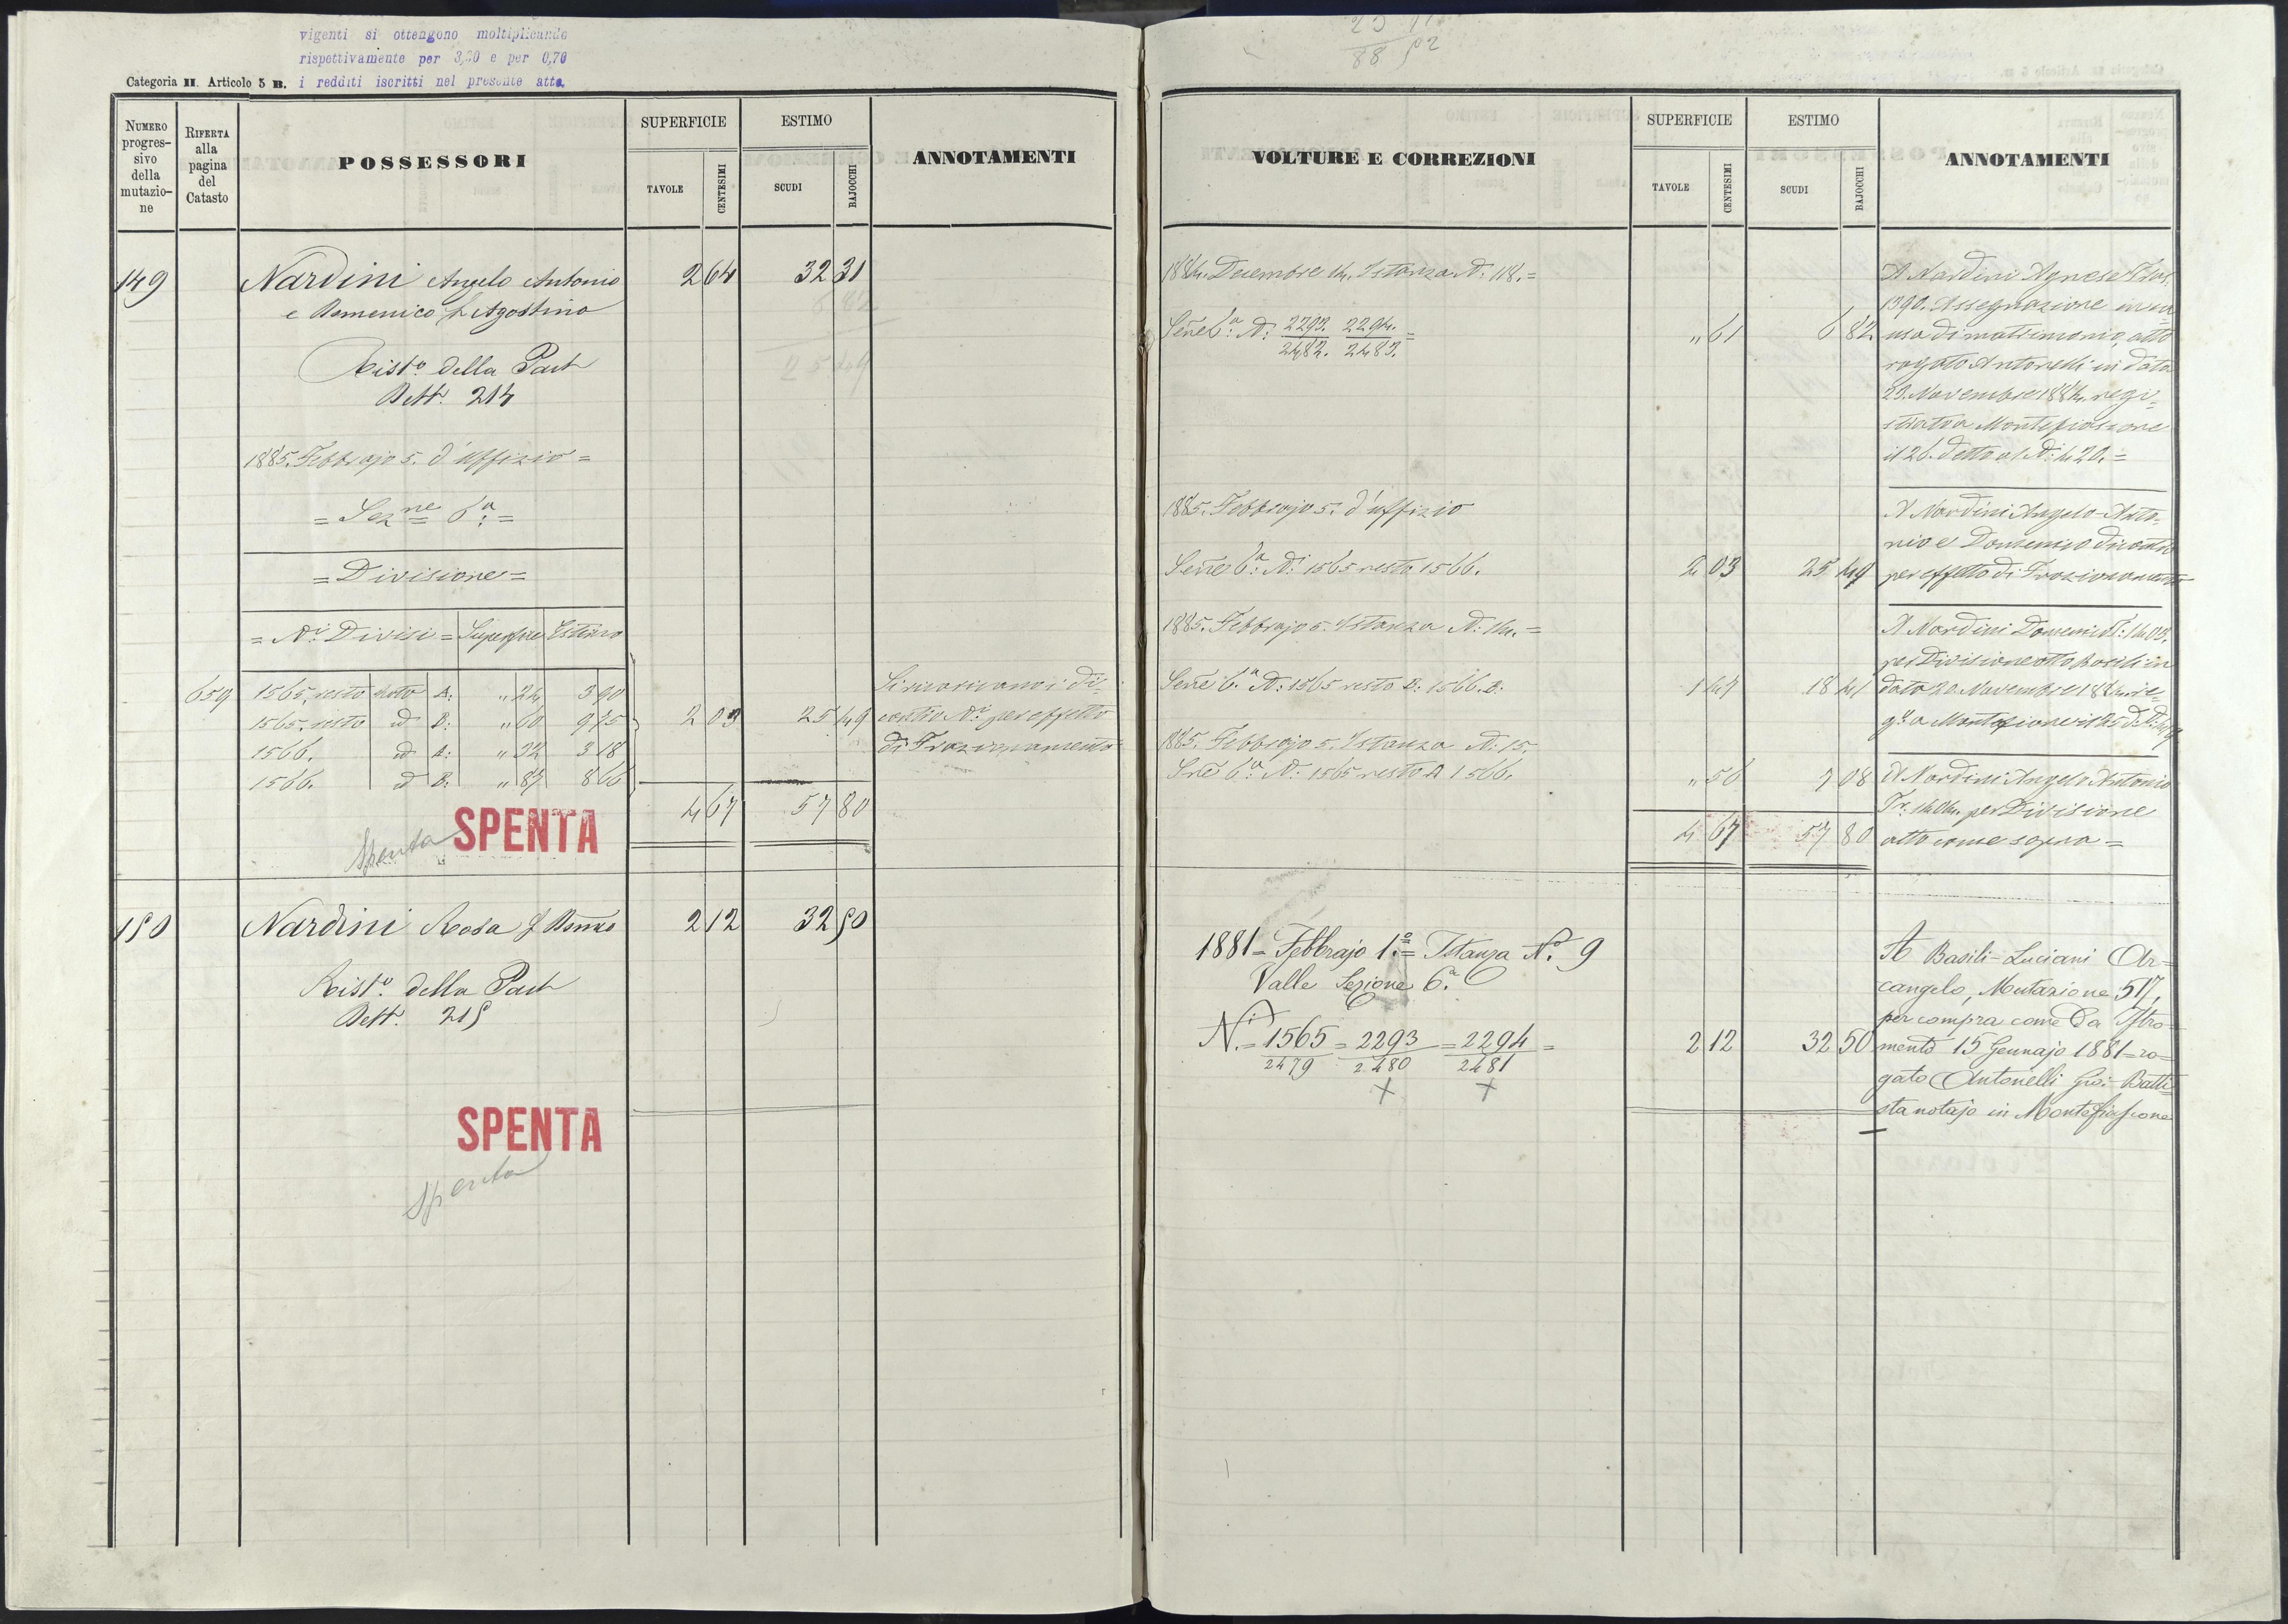 vigenti si ottengono moltiplicando
rispettivamente per 3,20 e per 0,70
Categoria II. Articolo 5 B. i redditi iscritti nel presente atto.
NUMERO progressivo della mutazione
RIFERTA alla pagina del Catasto
POSSESSORI
SUPERFICIE
TAVOLE
CENTESIMI
ESTIMO
SCUDI
BAJOCCHI
ANNOTAMENTI
149 Nardini Angelo Antonio 2 64 32 31
e Domenico f. Agostino 6 82
25 49
Rist.o della Part
Dett. 214
1885. Febbrajo 5. d'Uffizio =
= Sez.ne 6.a =
= Divisione =
= N.i Divisi = Superficie Estimo
659 1565. resto A: " 24 3 90
1565. resto d B: " 60 9 75
1566. d A: " 32 3 18
1566. d B: " 87 8 66
2 03 25 49
contro N.i per effetto
di Frazionamento
4 67 57 80
Spenta SPENTA
150 Nardini Rosa f. 2 12 32 50
Rist.o della Part
Dett. 215
SPENTA
Spenta
VOLTURE E CORREZIONI
SUPERFICIE
TAVOLE
CENTESIMI
ESTIMO
SCUDI
BAJOCCHI
ANNOTAMENTI
1884. Decembre 14. Istanza N: 118. =
N: 2293. 2294. = " 61 6 82
2482. 2483.
A Nardini Agnese
1390. Assegnazione in ca=
usa di matrimonio, atto
rogato Antonelli in data
23. Novembre 1884. regi=
strato a Montefiascone
il 26. detto al N: 420. =
1885. Febbrajo 5. d'uffizio
6.a N: 1565 resto 1566. 2 03 25 49
A Nardini Angelo-Anto=
nio e Domenico
per effetto di Frazionamento
1885. Febbrajo 5. Istanza N: 14. =
6.a N: 1565 resto B. 1566. B. 1 47 18 41
A Nardini Domenico T: 1403.
per Divisione atto Basili in
data 20. Novembre 1884. re=
1885. Febbrajo 5. Istanza N: 15.
6.a N: 1565 resto A 1566. " 56 7 08
A Nardini Angelo Antonio
T.r 1404. per Divisione
atto come sopra =
4 67 57 80
1881 = Febbrajo 1.o = Istanza N.o 9
Valle Sezione 6.a
N.i = 1565 = 2293 = 2294 = 2 12 32 50
2479 2480 2481
A Basili-Luciani Ar=
cangelo, Mutazione 517,
per compra come da Istro=
mento 15 Gennajo 1881 = ro=
gato Antonelli Gio: Batti=
sta notajo in Montefiascone